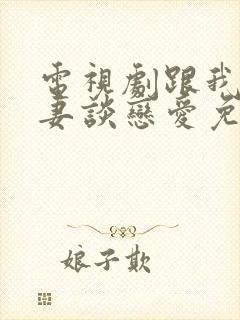 電視劇跟我
妻談戀愛免
娘子欺